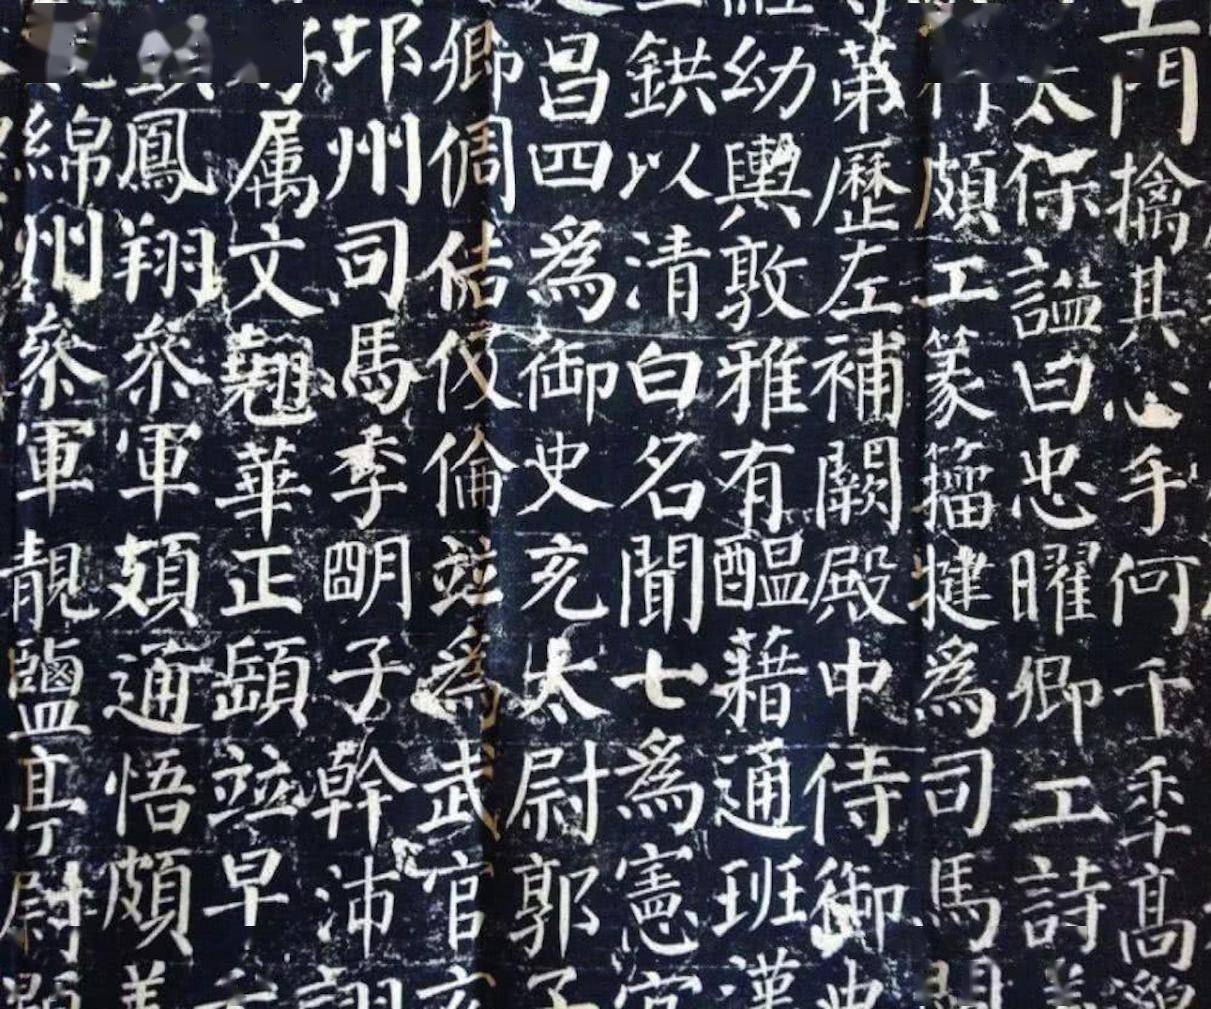 門擒其心手何千秊高邈
太保謚曰忠曜卿工詩善
行頗工篆籀揵爲司馬
第歷左補闕殿中侍御史
幼輿敦雅有醖藉通班漢
鉷以清白名聞七爲憲官
昌四爲御史充太尉郭子
卿倜佶伋倫並爲武官玄
邛州司馬季明子幹沛詡
属文翹華正頤並早
鳳翔叅軍頍通悟頗善
綿州叅軍靚鹽亭尉顥